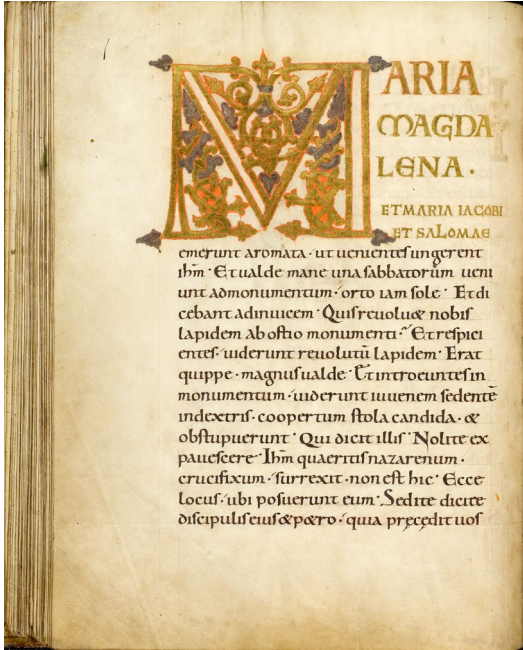 MARIA
MAGDA
LENA .
ET MARIA IACOBI
ET SALOMAE
emerunt aromata · ut uenientes ungerent
ihm̄ · Et ualde mane una sabbatorum ueni
unt ad monumentum · orto iam sole · Et di
cebant adinuicem · Quis reuoluet nobis
lapidem ab ostio monumenti · Et respici
entes · uiderunt reuolutū lapidem · Erat
quippe · magnus ualde · Et introeuntes in
monumentum · uiderunt iuuenem sedentē
in dextris · coopertum stola candida · &
obstupuerunt · Qui dicit illis · Nolite ex
pauescere · Ihm̄ quaeritis nazarenum ·
crucifixum · surrexit · non est hic · Ecce
locus · ubi posuerunt eum · Sed ite dicite
discipulis eius & p&ro · quia pręcędit uos